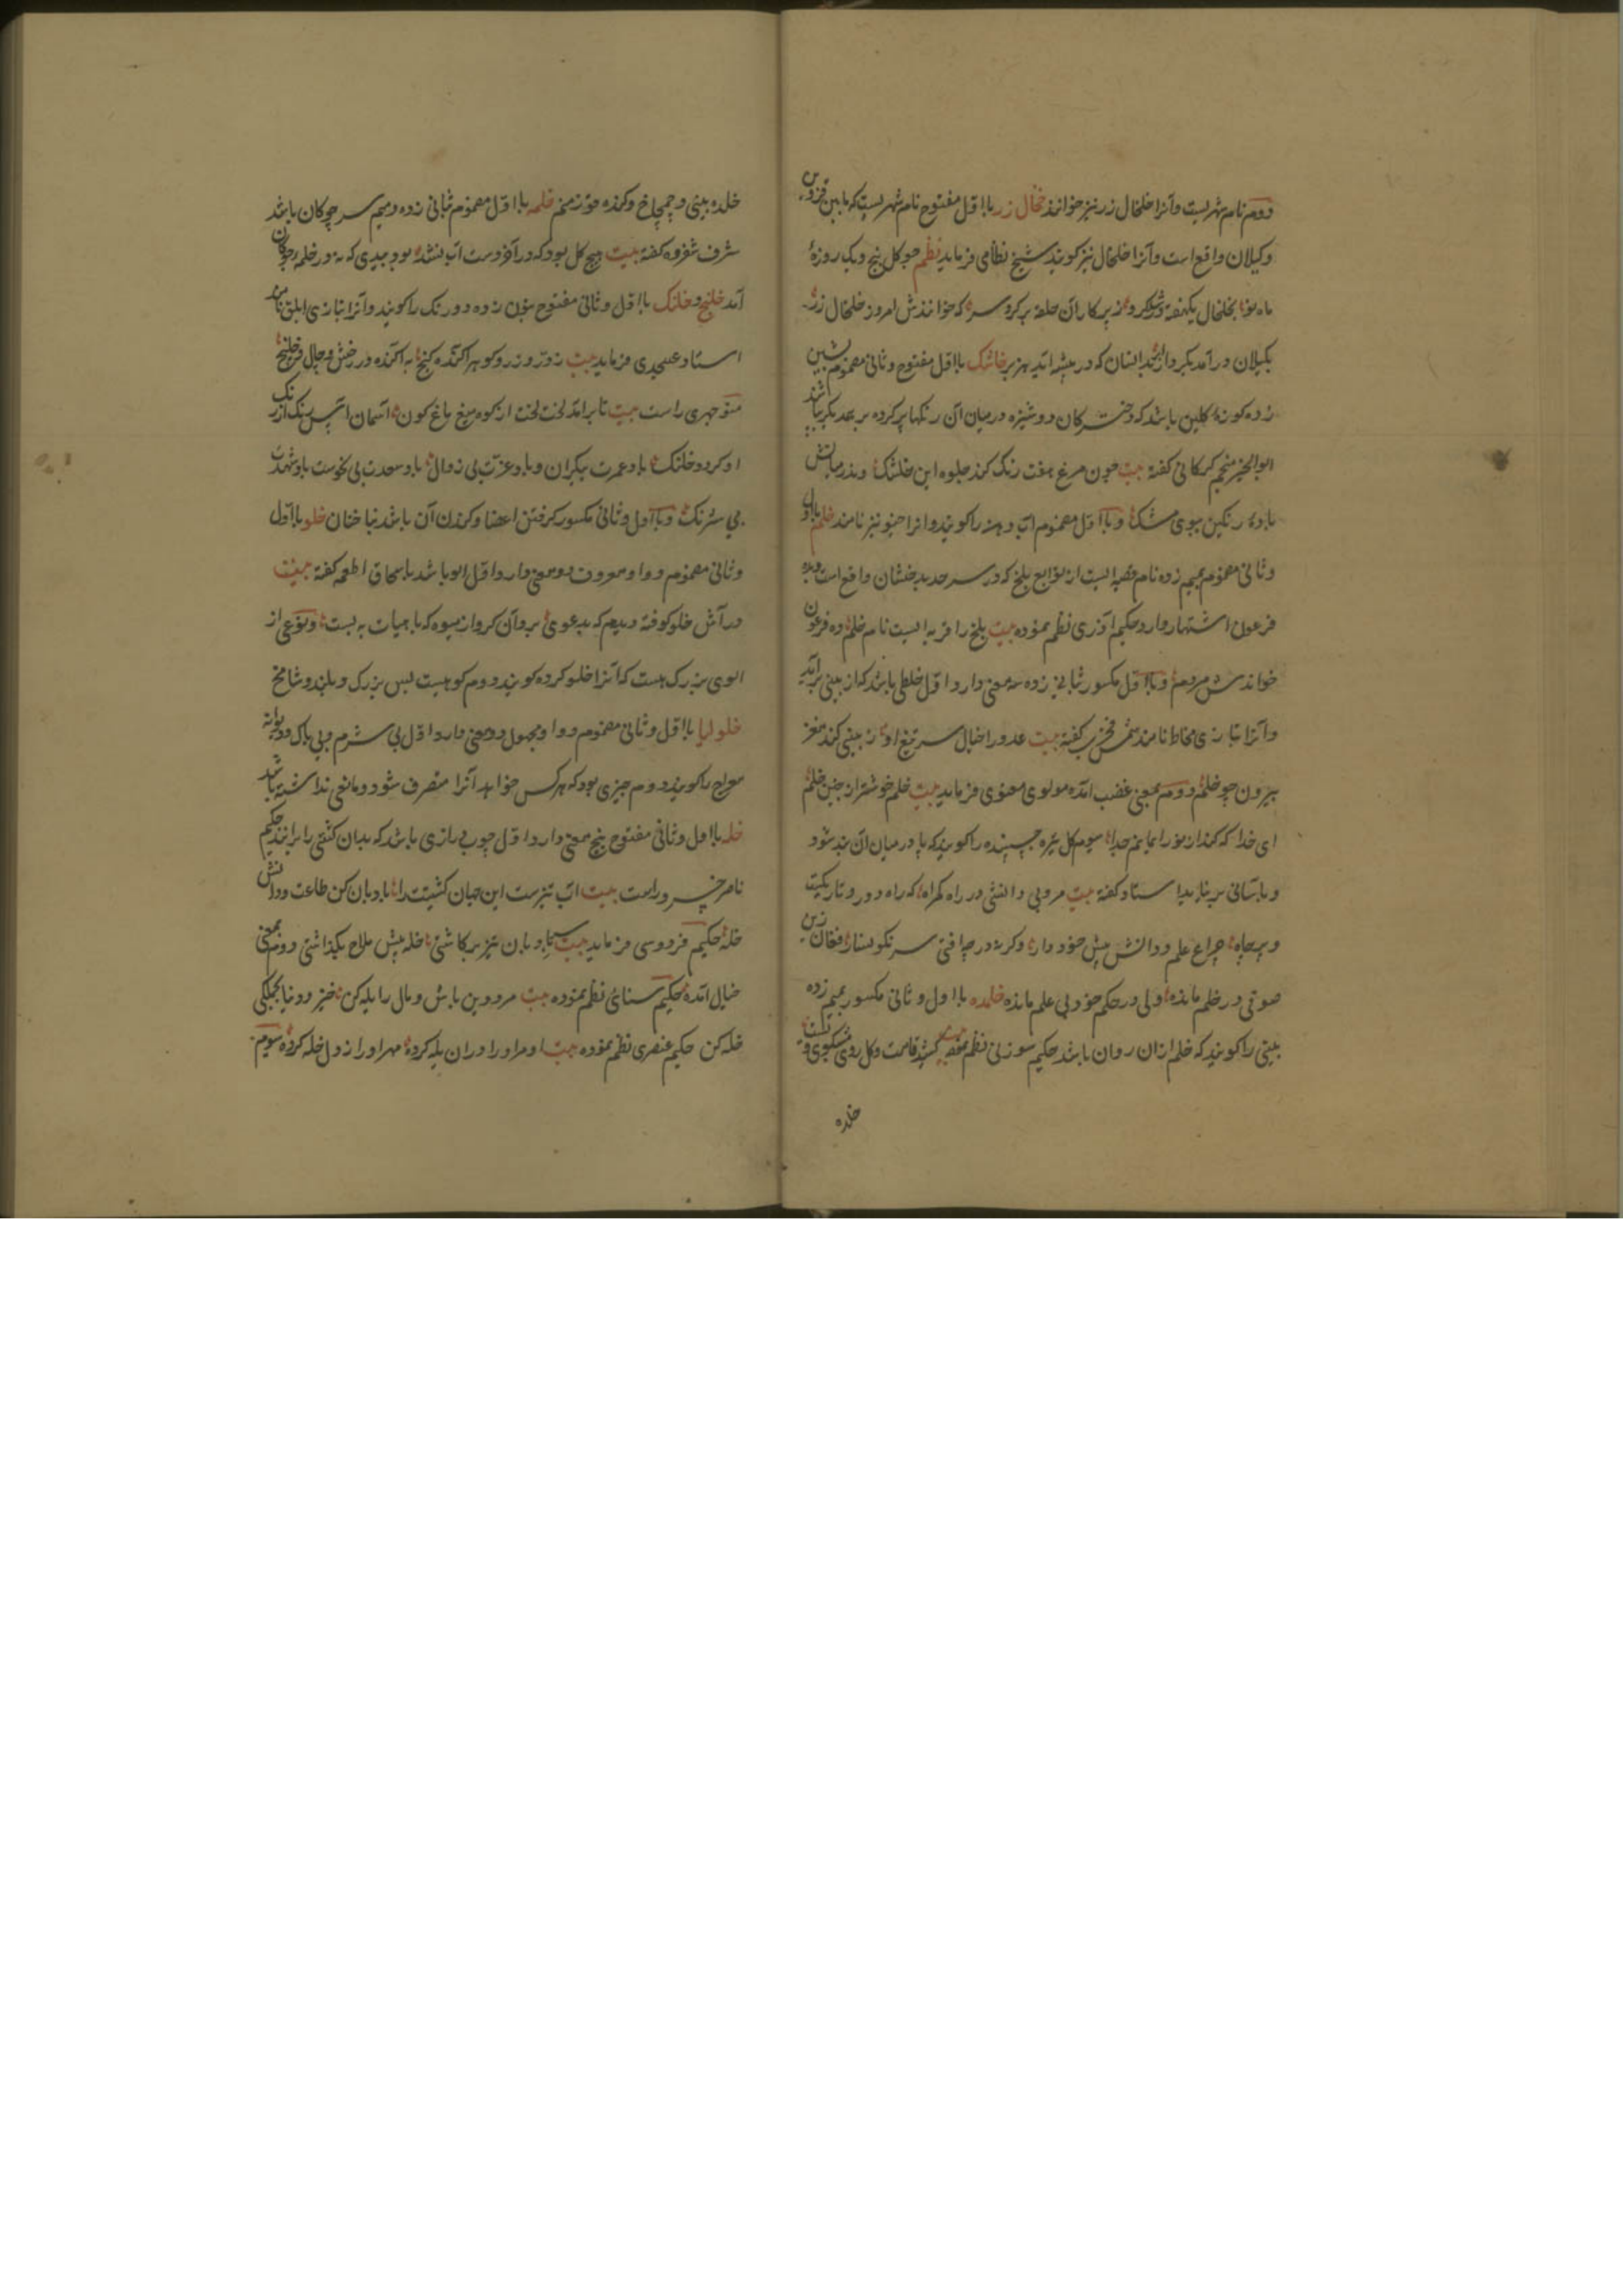 دوم نام شهریست و آنرا خلخال زر نیز خوانند خلخال زر با اول مفتوح نام شهریست که مابین قزوین
و کیلان واقع است و آنرا خلخال نیز کویند شیخ نظامی فرماید نظم چو کل پنج و یک روزهٔ
ماه نو بخلخال یکهفته
بکیلان در آمد بکردار که در بیشه آید هزبر خلشک با اول مفتوح و ثانی مضموم بشین
زده کوزهٔ کلین باشد که دخترکان دوشیزه درمیان آن رنکها پر کرده بر
ابوالخیر منجم کرکانی کفته بیت چون مرغ هفت رنک کند جلوه این خلشک
بادهٔ رنکین ببوی مشک و با اول مضموم آب دهن را کویند و انرا خیو نیز نامند خلم با اول
و ثانی مضموم بمیم زده نام قصبه ایست از توابع بلخ که در سرحد بدخشان واقع است و بده
فرعون اشتهار دارد حکیم آذری نظم نموده بیت بلخ را قریه ایست نام خلم ده فرعون
خواندش مردم و با اول مکسور بثانی زده سه معنی دارد اول خلطی باشد که از بینی برآید
و آنرا بتازی مخاط نامند شمس فخری کفته بیت عدو را خیال سر تیغ او ز بینی کند مغز
بیرون چو خلم دوم بمعنی غضب آمده مولوی معنوی فرماید بیت خلم خوشتر از چنین خلم
ای خدا که کند از نور ایمانم جدا سوم کل تیره چسپنده را کویند که پا در میان آن بند شود
و بآسانی بر نیاید استاد کفته بیت مروبی دانشی در راه کمراه که راه دور و تاریکیت
و پر چاه چراغ علم و دانش پیش خود دار و کر نه در چه افتی سرنکونسار
صوتی در خلم مانده ولی در حکم خود بی علم مانده خلمده با اول و ثانی مکسور بمیم زده
بینی را کویند که خلم ازان روان باشد حکیم سوزنی نظم نموده بیت
خلده
خلده بینی و کنده فوز منم خلمه با اول مضموم بثانی زده و میم سر چوکان باشد
شرف شفروه کفته بیت هیچ کل بود که در آخر دست آب نشد
آمد خلنج و خلنک با اول و ثانی مفتوح بنون زده دو رنک را کویند و آنرا بتازی ابلق نامند
استاد عسجدی فرماید بیت
منوچهری راست بیت تا برآمد لخت لخت از کوه میغ ماغ کون آسمان
او کرد و خلنک باد عمرت بیکران و باد عزت بی زوال باد سعدت بی نحوست باد شهدت
بی شرنک و با اول و ثانی مکسور کرفتن اعضا و کندن آن باشد بناخنان خلو با اول
و ثانی مضموم و واو معروف دو معنی دارد اول الو باشد باسحاق اطعمه کفته بیت
در آش خلو کوفته دیدم که بدعوی و نوعی از
الوی بزرک هست که آنرا خلو کرده کویند دوم کوهیست بس بزرک و بلند و شامخ
خلولیا با اول و ثانی مضموم و واو مجهول دو معنی دارد اول بی شرم و بی باک و دیوانه
مزاج را کویند دوم چیزی بود که هر کس خواهد آنرا متصرف شود و مانعی نداشته باشد
خله با اول و ثانی مفتوح پنج معنی دارد اول چوب درازی باشد که بدان کشتی را برانند حکیم
ناصر خسرو راست بیت آب تیزست این جهان کشتیت را بادبان کن طاعت و دانش
خله حکیم فردوسی فرماید بیت ستاره بادبان تیز برکاشتی خله پیش ملاح بکذاشتی دوم بمعنی
خیال آمده حکیم سنائی نظم نموده بیت مرد دین باش و مال را یله کن خیز و دنیا بجملکی
خله کن حکیم عنصری نظم نموده بیت او مر او را دران یله کرده مهر او را ز دل خله کرده سوم